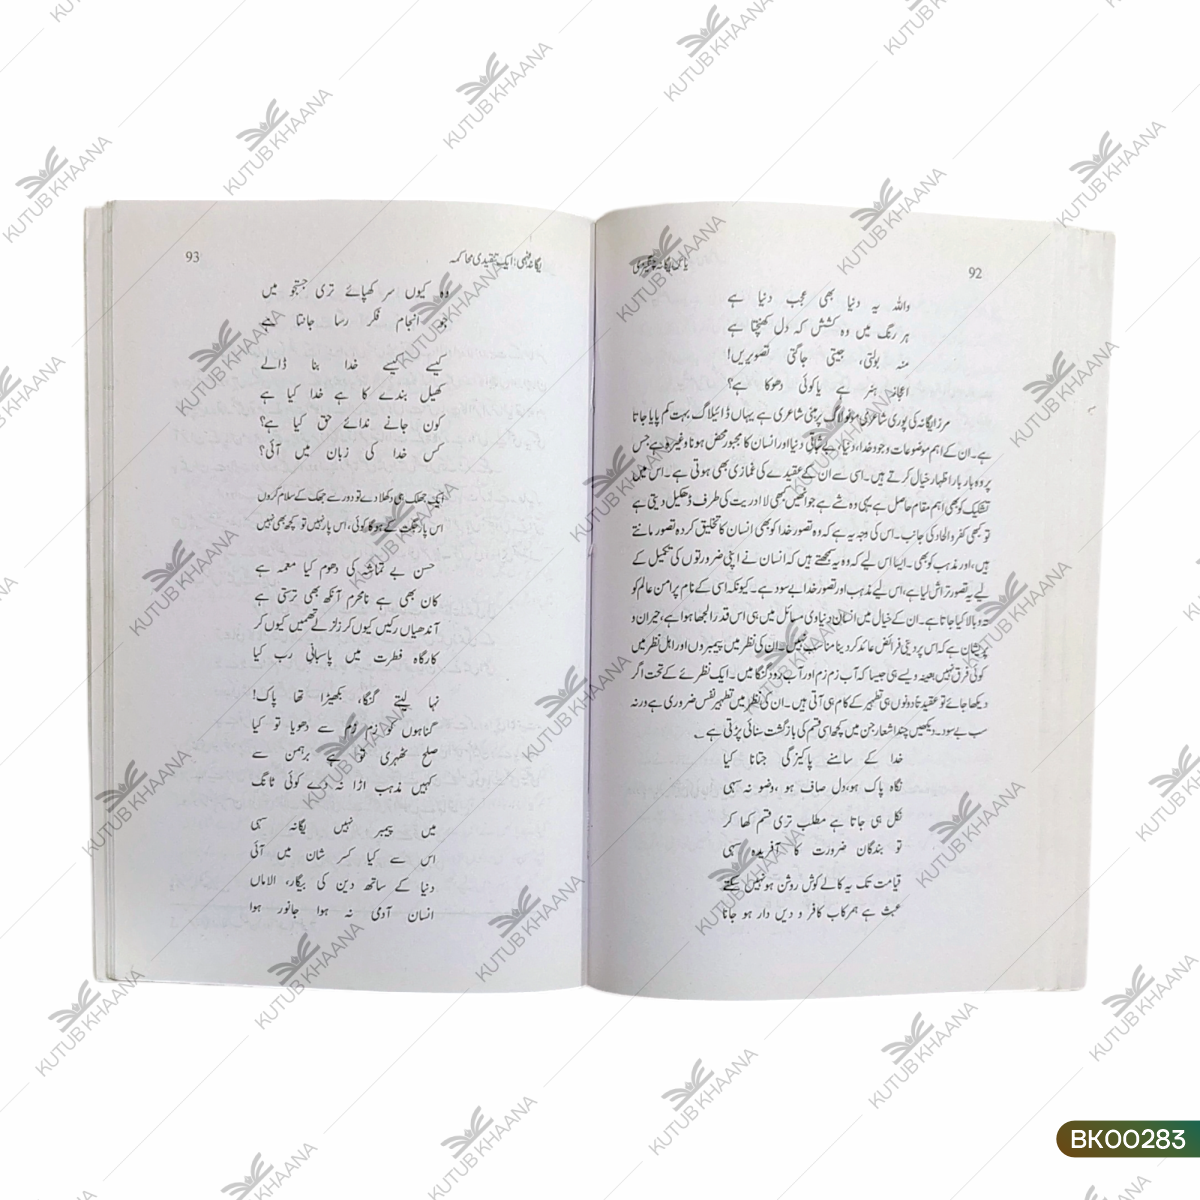 92
یاس یگانہ چنگیزی
واللہ یہ دنیا بھی عجب دنیا ہے
ہر رنگ میں وہ کشش کہ دل کھنچتا ہے
منہ بولتی، جیتی جاگتی تصویریں!
اعجاز ہنر ہے یا کوئی دھوکا ہے؟
مرزا یگانہ کی پوری شاعری مونولاگ پر مبنی شاعری ہے یہاں ڈائیلاگ بہت کم پایا جاتا
ہے۔ ان کے اہم موضوعات وجود خدا، دنیا کی بے ثباتی دنیا اور انسان کا مجبور محض ہونا وغیرہ ہے جس
پر وہ بار بار اظہار خیال کرتے ہیں۔ اسی سے ان کے عقیدے کی غمازی بھی ہوتی ہے۔ اس میں
تشکیک کو بھی اہم مقام حاصل ہے یہی وہ شے ہے جو انھیں کبھی لا ادریت کی طرف ڈھکیل دیتی ہے
تو کبھی کفر و الحاد کی جانب۔ اس کی وجہ یہ ہے کہ وہ تصور خدا کو بھی انسان کا تخلیق کردہ تصور مانتے
ہیں، اور مذہب کو بھی۔ ایسا اس لیے کہ وہ یہ سمجھتے ہیں کہ انسان نے اپنی ضرورتوں کی تکمیل کے
لیے یہ تصور تراش لیا ہے، اس لیے مذہب اور تصور خدا بے سود ہے۔ کیونکہ اسی کے نام پر امن عالم کو
تہ و بالا کیا جاتا ہے۔ ان کے خیال میں انسان دنیاوی مسائل میں ہی اس قدر الجھا ہوا ہے، حیران و
پریشان ہے کہ اس پر دینی فرائض عائد کر دینا مناسب نہیں۔ ان کی نظر میں پیمبروں اور اہل نظر میں
کوئی فرق نہیں بعینہ ویسے ہی جیسا کہ آب زم زم اور آب رود گنگا میں۔ ایک نظرئے کے تحت اگر
دیکھا جائے تو عقیدتاً دونوں ہی تطہیر کے کام ہی آتی ہیں۔ ان کی نظر میں تطہیر نفس ضروری ہے ورنہ
سب بے سود۔ دیکھیں چند اشعار جن میں کچھ اسی قسم کی بازگشت سنائی پڑتی ہے
خدا کے سامنے پاکیزگی جتانا کیا
نگاہ پاک ہو، دل صاف ہو، وضو نہ سہی
نکل ہی جاتا ہے مطلب تری قسم کھا کر
تو بندگان ضرورت کا آفریدہ سہی
قیامت تک یہ کالے کوش روشن ہو نہیں سکتے
عبث ہے ہمرکاب کافر و دیں دار ہو جانا
یگانہ فہمی: ایک تنقیدی محاکمہ
93
وہ کیوں سر کھپائے تری جستجو میں
جو انجام فکر رسا جانتا ہے
کیسے کیسے خدا بنا ڈالے
کھیل بندے کا ہے خدا کیا ہے
کون جانے ندائے حق کیا ہے؟
کس خدا کی زبان میں آئی؟
ایک جھلک ہی دکھلا دے تو دور سے جھک کے سلام کروں
اس پار جگت کے ہوگا کوئی، اس پار نہیں تو کچھ بھی نہیں
حسن بے تماشہ کی دھوم کیا معمہ ہے
کان بھی ہے نامحرم آنکھ بھی ترستی ہے
آندھیاں رکیں کیوں کر زلزلے تھمیں کیوں کر
کارگاہ فطرت میں پاسبانی رب کیا
نہا لیتے گنگا، بکھیڑا تھا پاک!
گناہوں کو زم زم سے دھویا تو کیا
صلح ٹھہری تو ہے برہمن سے
کہیں مذہب اڑا نہ دے کوئی ٹانگ
میں پیمبر نہیں یگانہ سہی
اس سے کیا کسر شان میں آئی
دنیا کے ساتھ دین کی بیگار، الاماں
انسان آدمی نہ ہوا جانور ہوا
KUTUB KHAANA
BK00283